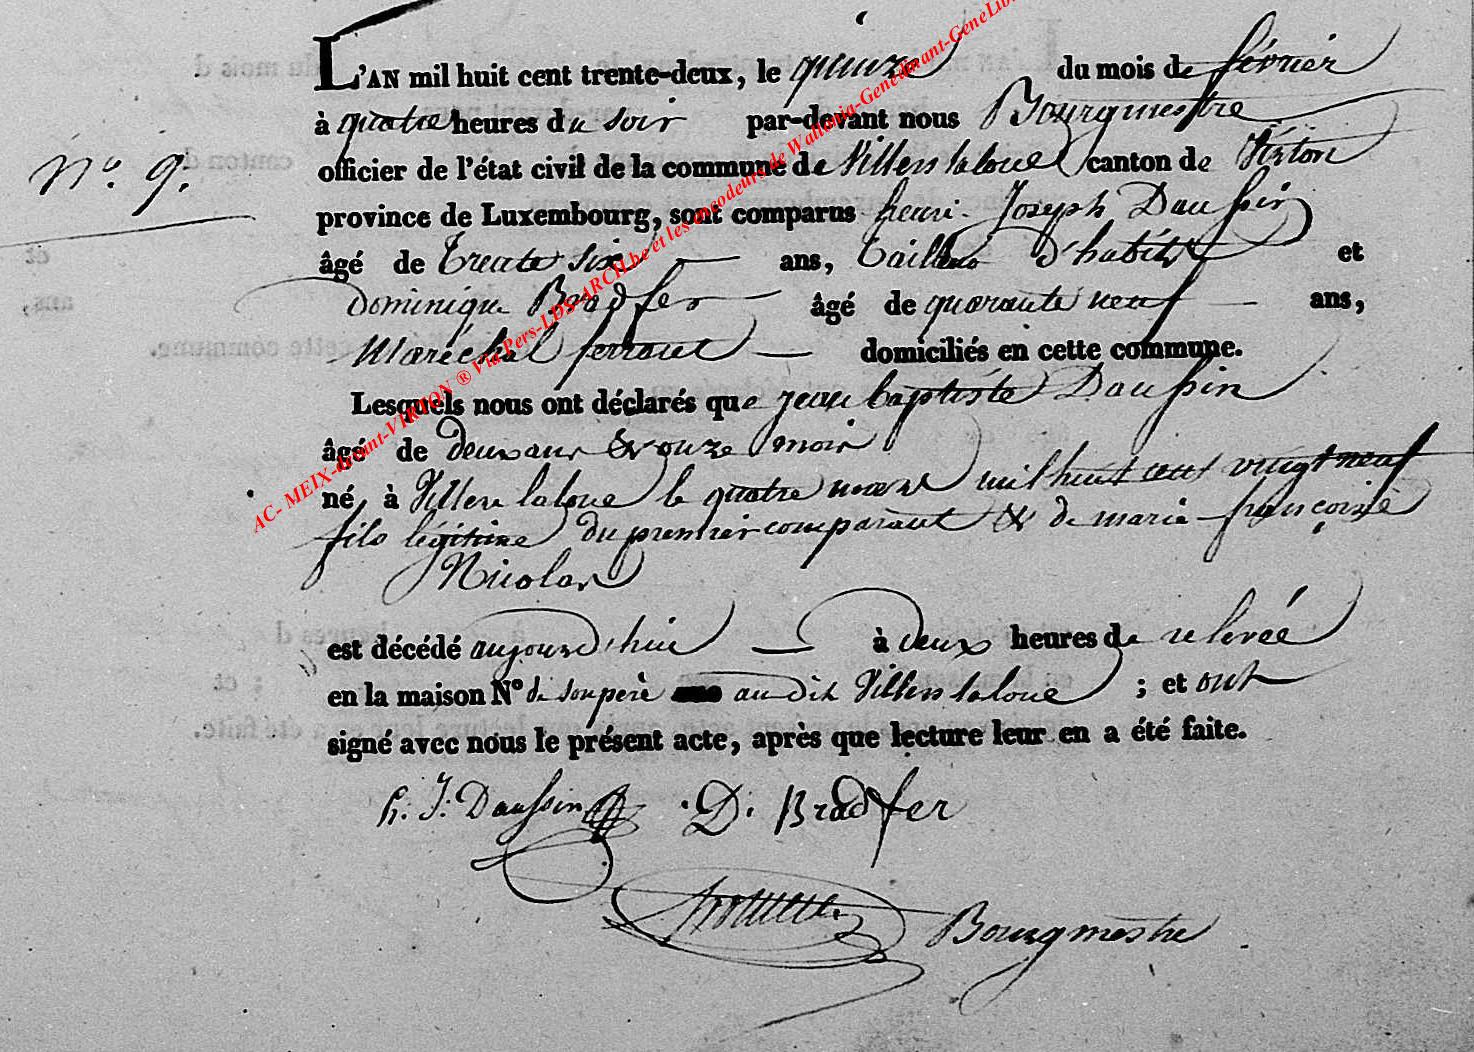 L'AN mil huit cent trente-deux, le quinze du mois de février
à quatre heures du soir par-devant nous Bourgmestre
officier de l'état civil de la commune de Villers laloue canton de Virton
N.o 9.
province de Luxembourg, sont comparus henri Joseph Daussin
âgé de trente six ans, tailleur d'habits et
Dominique Bradfer âgé de quarante neuf ans,
Maréchal ferrant domiciliés en cette commune.
Lesquels nous ont déclarés que jean baptiste Daussin
âgé de deux ans & onze mois
né, à Villers laloue le quatre mars mil huit cent vingt neuf
fils légitime du premier comparant & de marie françoise
Nicolas
est décédé aujourd'hui à deux heures de relevée
en la maison N° de son père au dit Villers laloue ; et ont
signé avec nous le présent acte, après que lecture leur en a été faite.
h. J. Daussin D. Bradfer
Bourgmestre
AC- MEIX-devant-VIRTON ® Via Pers-LDS-ARCH.be et les encodeurs de Wallonia-Genedinant-GeneLib